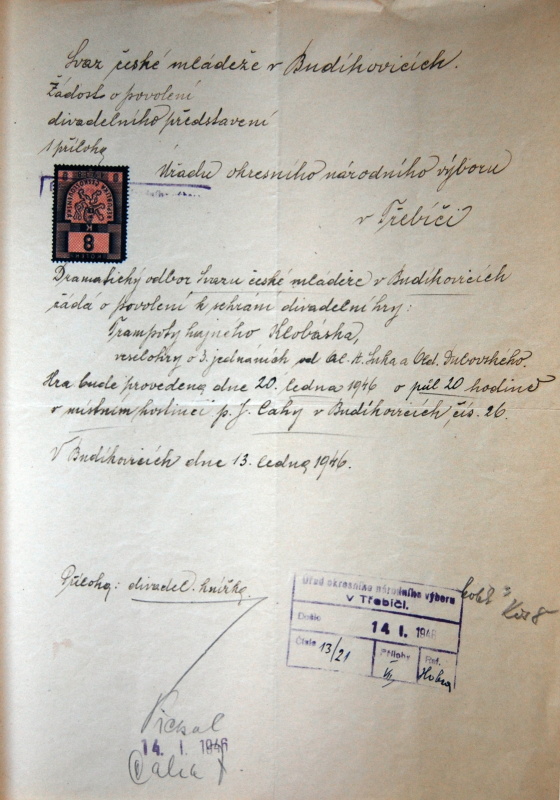 Svaz české mládeže v Budíkovicích.
Žádost o povolení
divadelního představení
1 příloha
Úřadu okresního národního výboru
v Třebíči
8
K
8
Dramatický odbor Svazu české mládeže v Budíkovicích
žádá o povolení k sehrání divadelní hry:
Trampoty hajného Klobáska,
veselohry o 3. jednáních od Al. A. Luka a Old. Dubovského.
Hra bude provedena dne 20. ledna 1946 o půl 20 hodině
v místním hostinci p. J. Cahy v Budíkovicích, čís. 26.
V Budíkovicích dne 13. ledna 1946.
Příloha: divadel. knížka
Úřad okresního národního výboru
v Třebíči.
Došlo
14 I. 1946
Číslo 13/21
Přílohy
Ref.
14. I. 1946